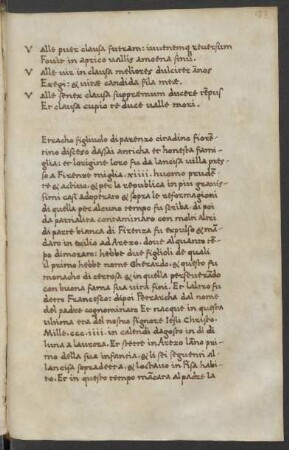 Valle puer clausa fueram: iuuenemq; reuersum
Fouit in aprico vallis amoena sinu.
Valle uir in clausa meliores dulciter ãnos
Exegi: & uitæ candida fila meæ.
Valle senex clausa supremum ducere tẽpus
Et clausa cupio te duce valle mori.
Etracho figliuolo di parenzo citadino fioré
tino disceso da
miglia: et lorigine loro fu da lancisa uilla pres
so a Firenze miglia .xiiii. huomo prudẽ
te & actiuo. & per la republica in piu grauis
simi casi adoperato & sopra le reformagioni
di quella per alcuno tempo fu scriba. di poi
da partialita contaminato con molti altri
di parte bianca di Firenza fu expulso & mã
dato in exilio ad Arezo. doue alquanto tẽ
po dimorare: hebbe due figlioli de quali
il primo hebbe nome Gherardo. & questo fu
monacho di certosa & in quella perseuerãdo
con buona fama sua uita fini. Et laltro fu
detto Francesco: dipoi Petrarcha dal nome
del padre cognominato Et nacque in questa
ultima eta del nostro signore Iesu Christo.
Mille.ccc.iiii. in calendi dagosto in di di
luna a laurora. Et stette in Arezo lãno pri
mo della sua infantia. & li sei seguenti al
lancisa sopradetta. & loctauo in Pisa habi
to. Et in questo tempo mãcata al padre la